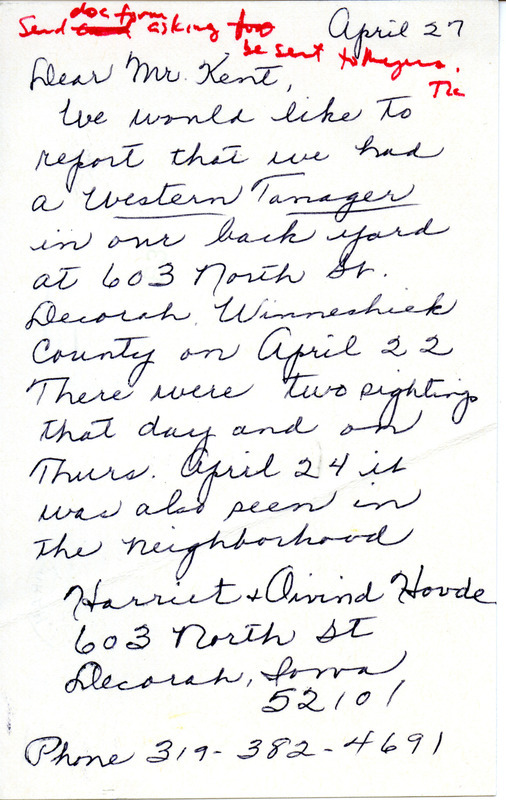 doc form
Send card asking for
be sent to Myers.
TK
April 27
Dear Mr. Kent,
We would like to
report that we had
a Western Tanager
in our back yard
at 603 North St.
Decorah, Winneshiek
County on April 22
There were two sightings
that day and on
Thurs. April 24 it
was also seen in
the neighborhood
Harriet & Oivind Hovde
603 North St
Decorah, Iowa
52101
Phone 319-382-4691